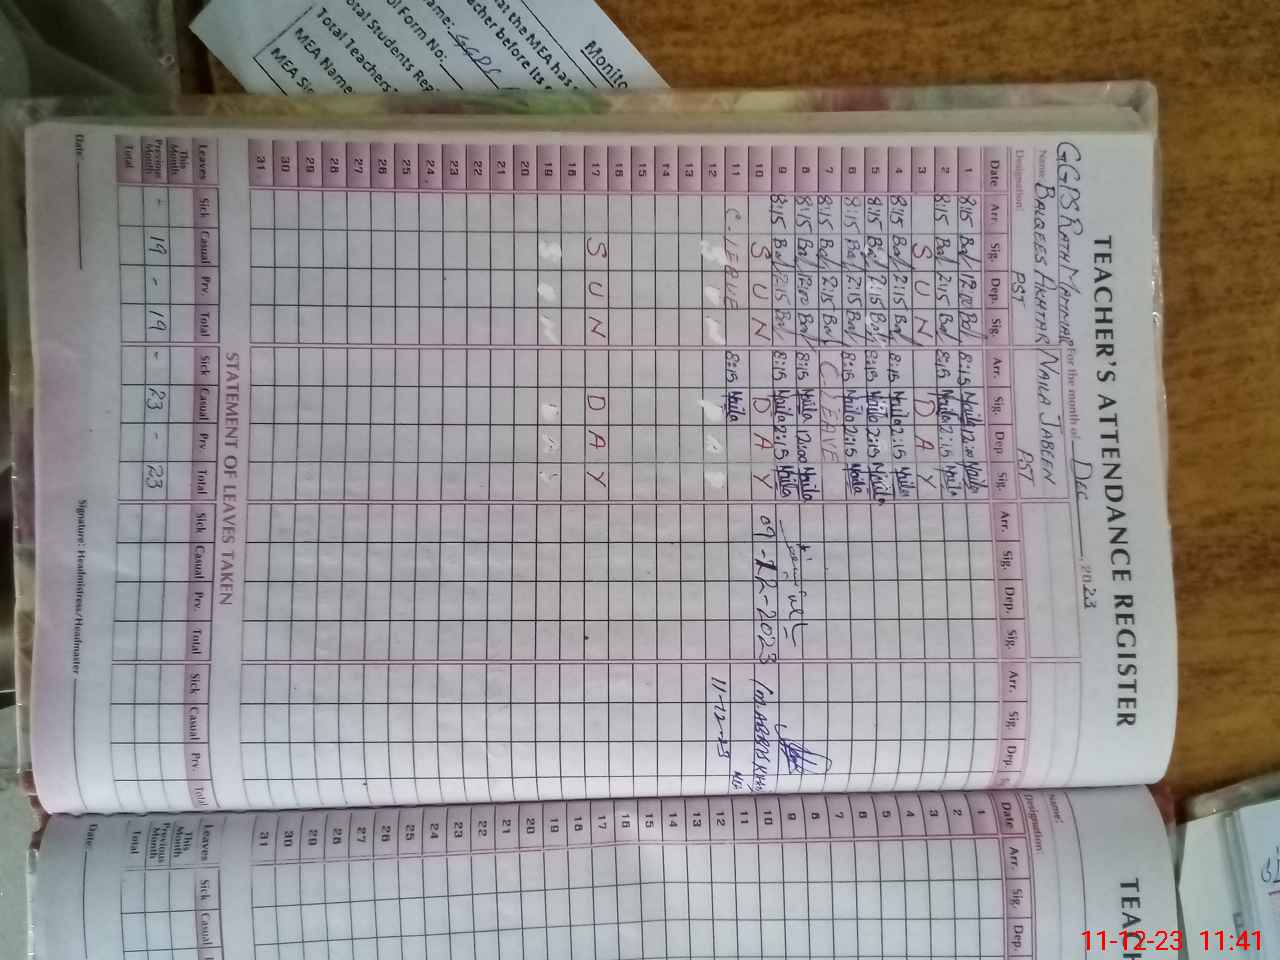 Monito
at the MEA has
acher before its
ame: GGPS
ol Form No:
otal Students Re
Total Teachers
MEA Name
MEA Si
TEACHER'S ATTENDANCE REGISTER
GGPS RATH MANNAR For the month of Dec , 2023
Name: BALQEES AKHTAR NAILA JABEEN
Designation: PST PST
Date Arr. Sig. Dep. Sig. Arr. Sig. Dep Sig. Arr. Sig. Dep. Sig. Arr. Sig. Dep. S
1 8:15 Bal 12:00 Bal 8:15 Naila 12:00 Naila
2 8:15 Bal 2:15 Bal 8:15 Naila 2:15 Naila
3 S U N D A Y
4 8:15 Bal 2:15 Bal 8:15 Naila 2:15 Naila
5 8:15 Bal 2:15 Bal 8:15 Naila 2:15 Naila
6 8:15 Bal 2:15 Bal 8:15 Naila 2:15 Naila
7 8:15 Bal 2:15 Bal C.LEAVE
8 8:15 Bal 12:00 Bal 8:15 Naila 12:00 Naila
9 8:15 Bal 2:15 Bal 8:15 Naila 2:15 Naila
10 S U N D A Y 09-12-2023 (M.ABBAS
11 C.LEAVE 8:15 Naila MEA
12 11-12-23
13
14
15
16
17 S U N D A Y
18
19
20
21
22
23
24
25
26
27
28
29
30
31
STATEMENT OF LEAVES TAKEN
Leaves Sick Casual Prv. Total Sick Casual Prv Total Sick Casual Prv. Total Sick Casual Prv. Total
This Month
Previous Month - 19 - 19 - 23 - 23
Total
Date: Signature: Headmistress/Headmaster
TEACH
Name:
Designation:
Date Arr. Sig. Dep.
1
2
3
4
5
6
7
8
9
10
11
12
13
14
15
16
17
18
19
20
21
22
23
24
25
26
27
28
29
30
31
Leaves Sick Casual
This Month
Previous Month
Total
Date:
11-12-23 11:41